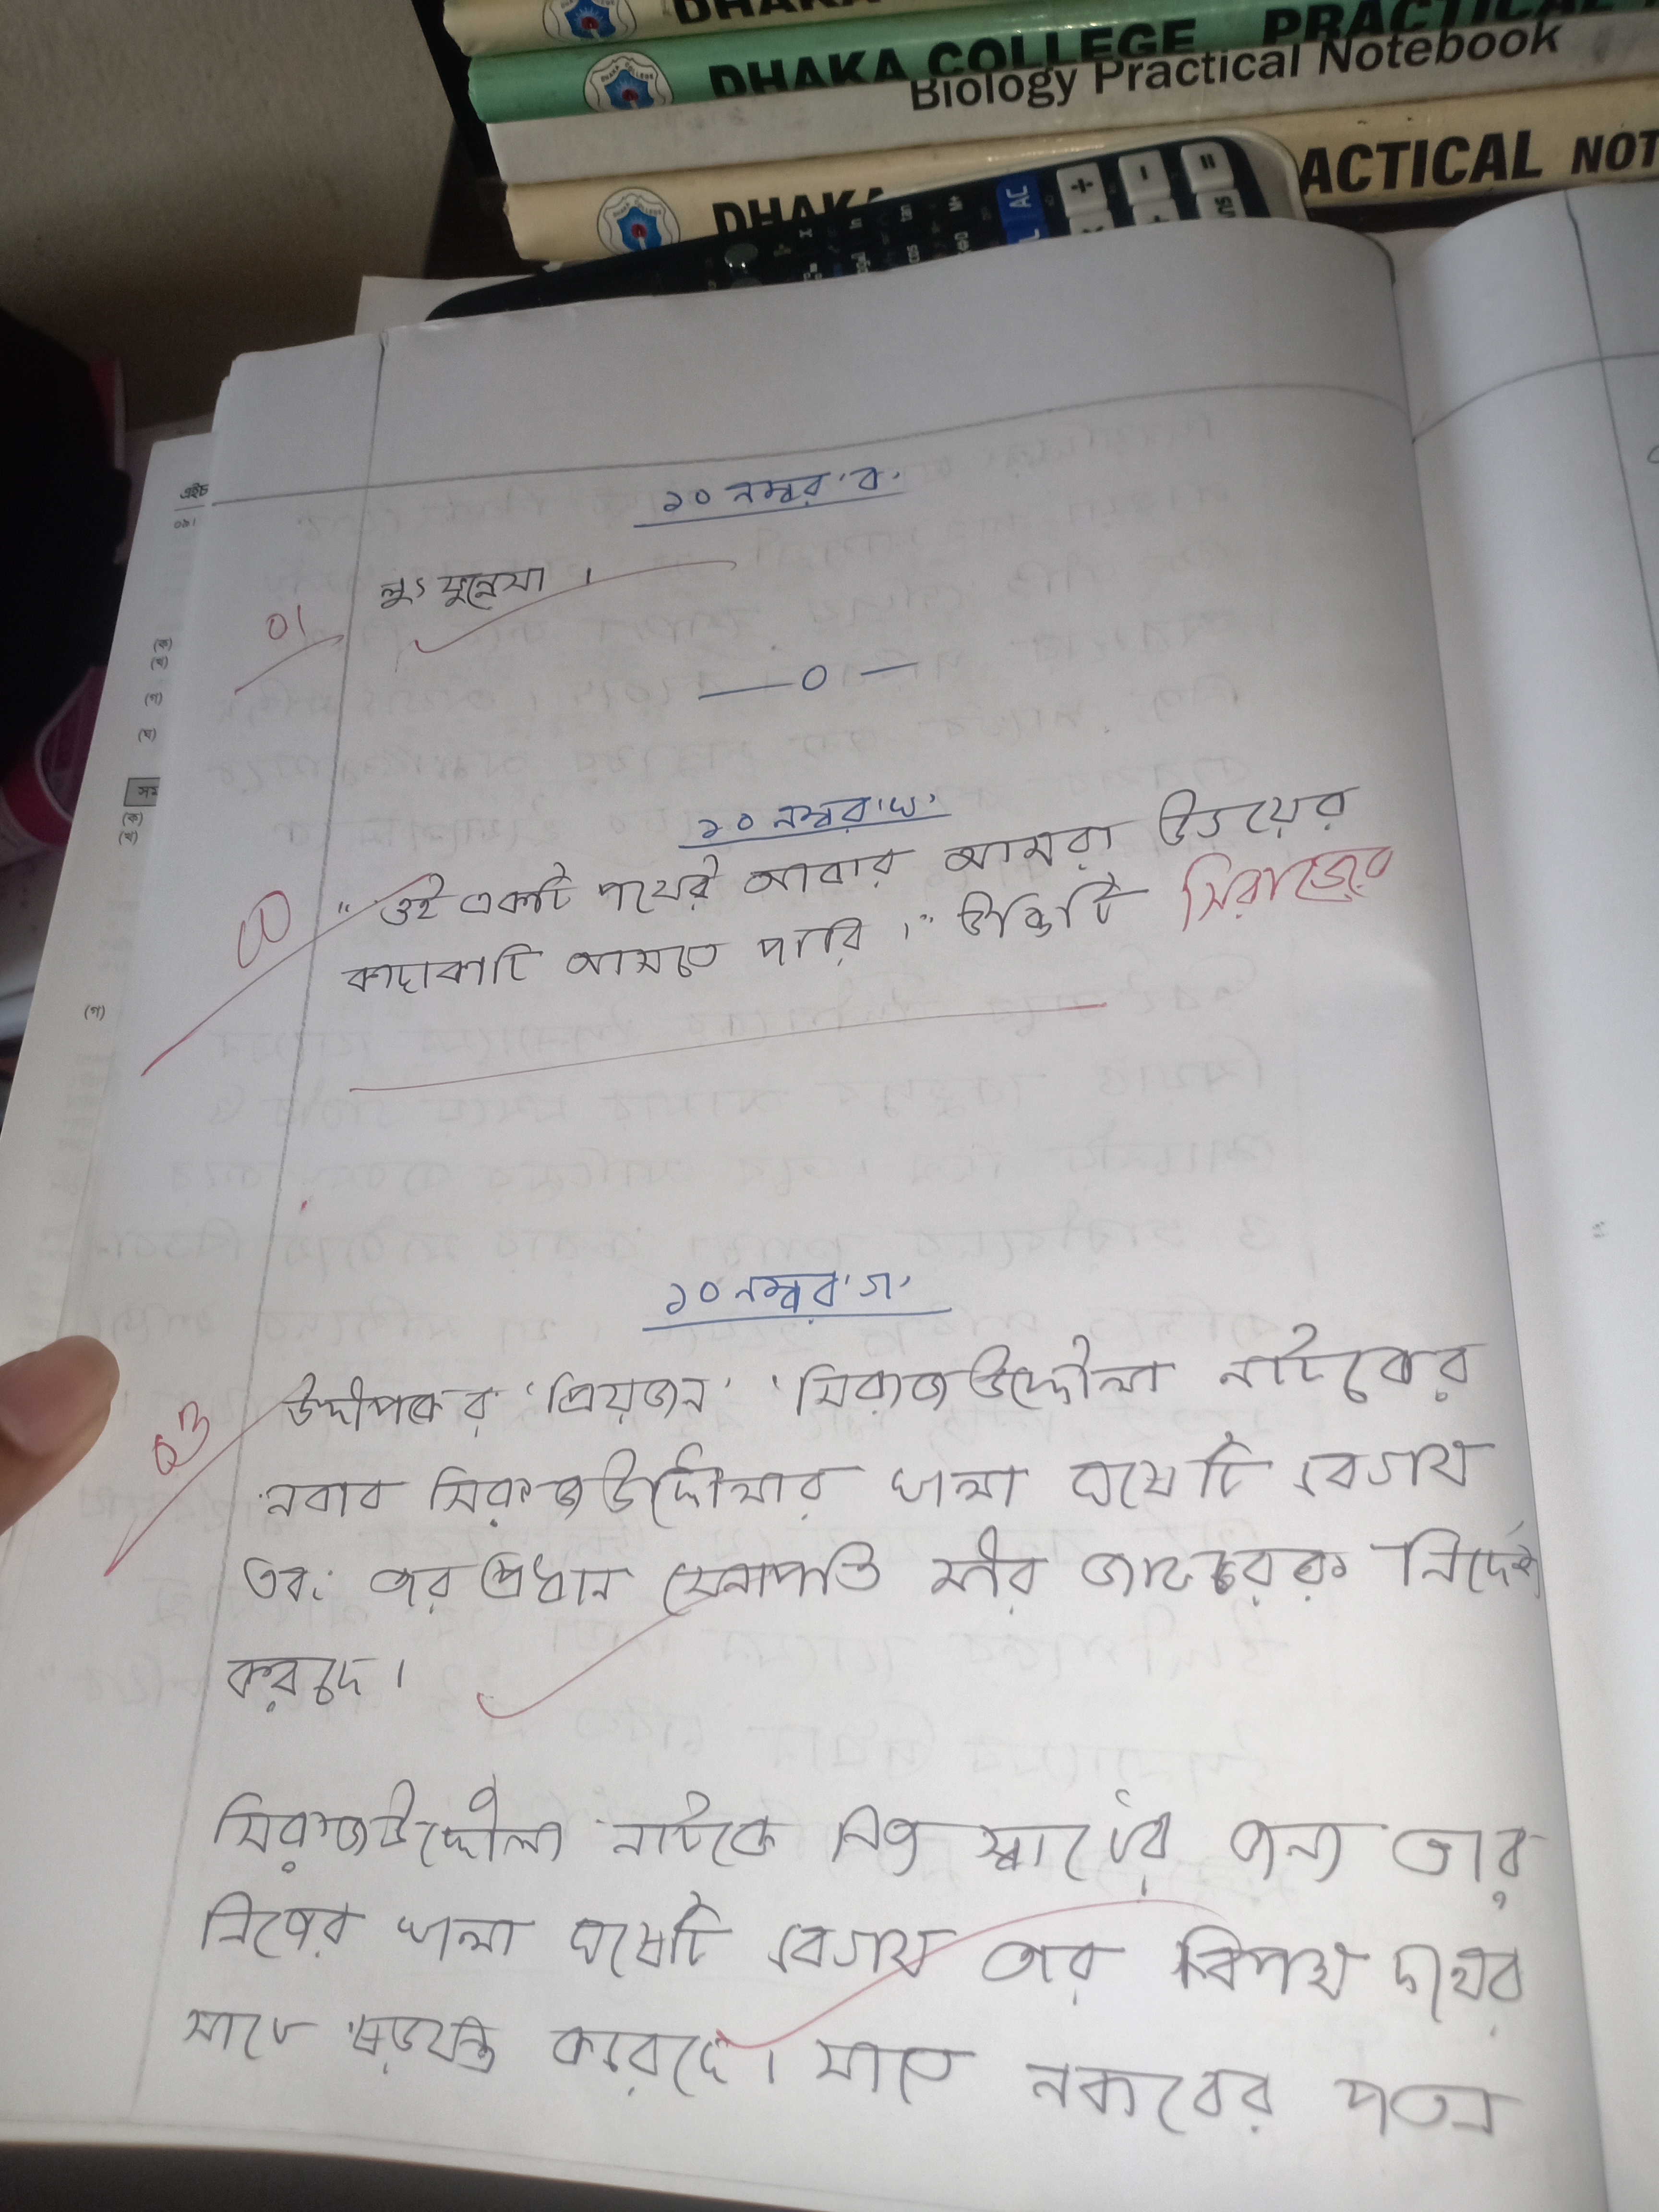 DHAKA
DHAKA COLLEGE PRACTICAL
Biology Practical Notebook
DHAKA
ACTICAL NOT
AC
এইচ
১০ নম্বর 'ক'
লুৎফুন্নেসা ।
01
— 0 —
১০ নম্বর 'খ'
" ওই একটি পথেই আবার আমরা উভয়ের
কাছাকাছি আসতে পারি ।" উক্তিটি সিরাজের
১০ নম্বর 'গ'
03
উদ্দীপকের 'প্রিয়জন' 'সিরাজউদ্দৌলা নাটকের
নবাব সিরাজউদ্দৌলার খালা ঘসেটি বেগম
এবং তার প্রধান সেনাপতি মীর জাফরকে নির্দেশ
করছে ।
সিরাজউদ্দৌলা নাটকে নিজ স্বার্থের জন্য তার
নিজের খালা ঘসেটি বেগম তার বিপক্ষ দলের
সাথে ষড়যন্ত্র করেছে । যাতে নবাবের পতন
(গ)